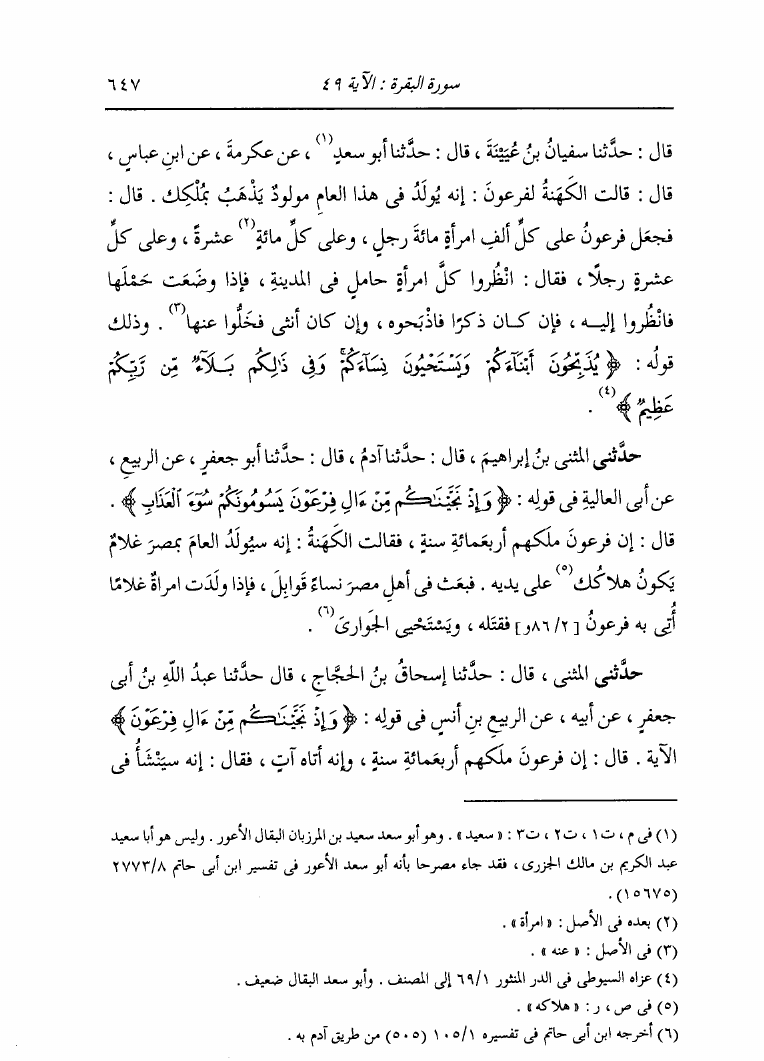 سورة البقرة : الآية ٤٩ ٦٤٧
قال : حدَّثنا سفيانُ بنُ عُيَيْنَةَ ، قال : حدَّثنا أبو سعدٍ(١) ، عن عكرمةَ ، عن ابنِ عباسٍ ،
قال : قالت الكَهَنةُ لفرعونَ : إنه يُولَدُ فى هذا العامِ مولودٌ يَذْهَبُ بمُلْكِك . قال :
فجعَل فرعونُ على كلِّ ألفِ امرأةٍ مائةَ رجلٍ ، وعلى كلِّ مائةٍ(٢) عشرةً ، وعلى كلِّ
عشرةٍ رجلًا ، فقال : انْظُروا كلَّ امرأةٍ حاملٍ فى المدينةِ ، فإذا وضَعَت حَمْلَها
فانْظُروا إليـه ، فإن كـان ذكرًا فاذْبَحوه ، وإن كان أنثى فخَلُّوا عنها(٣) . وذلك
قولُه : ﴿ يُذَبِّحُونَ أَبْنَآءَكُمْ وَيَسْتَحْيُونَ نِسَآءَكُمْۚ وَفِى ذَٰلِكُم بَـلَآءٌ مِّن رَّبِّكُمْ
عَظِيمٌ ﴾(٤) .
حدَّثنى المثنى بنُ إبراهيمَ ، قال : حدَّثنا آدمُ ، قال : حدَّثنا أبو جعفرٍ ، عن الربيعِ ،
عن أبى العاليةِ فى قولِه : ﴿ وَإِذْ نَجَّيْنَـٰكُم مِّنْ ءَالِ فِرْعَوْنَ يَسُومُونَكُمْ سُوٓءَ ٱلْعَذَابِ ﴾ .
قال : إن فرعونَ ملَكهم أربعَمائةِ سنةٍ ، فقالت الكَهَنةُ : إنه سيُولَدُ العامَ بمصرَ غلامٌ
يَكونُ هلاكُك(٥) على يديه . فبعَث فى أهلِ مصرَ نساءً قَوابِلَ ، فإذا ولَدَت امرأةٌ غلامًا
أُتِى به فرعونُ [٨٦/٢و] فقتَله ، ويَسْتَحْيى الجَوارىَ(٦) .
حدَّثنى المثنى ، قال : حدَّثنا إسحاقُ بنُ الحجَّاجِ ، قال حدَّثنا عبدُ اللَّهِ بنُ أبى
جعفرٍ ، عن أبيه ، عن الربيعِ بنِ أنسٍ فى قولِه : ﴿ وَإِذْ نَجَّيْنَـٰكُم مِّنْ ءَالِ فِرْعَوْنَ ﴾
الآية . قال : إن فرعونَ ملَكهم أربعَمائةِ سنةٍ ، وإنه أتاه آتٍ ، فقال : إنه سيَنْشَأُ فى
(١) فى م ، ت١ ، ت٢ ، ت٣ : « سعيد » . وهو أبو سعد سعيد بن المرزبان البقال الأعور . وليس هو أبا سعيد
عبد الكريم بن مالك الجزرى ، فقد جاء مصرحا بأنه أبو سعد الأعور فى تفسير ابن أبى حاتم ٢٧٧٣/٨
(١٥٦٧٥) .
(٢) بعده فى الأصل : « امرأة » .
(٣) فى الأصل : « عنه » .
(٤) عزاه السيوطى فى الدر المنثور ٦٩/١ إلى المصنف . وأبو سعد البقال ضعيف .
(٥) فى ص ، ر : « هلاكه » .
(٦) أخرجه ابن أبى حاتم فى تفسيره ١٠٥/١ (٥٠٥) من طريق آدم به .